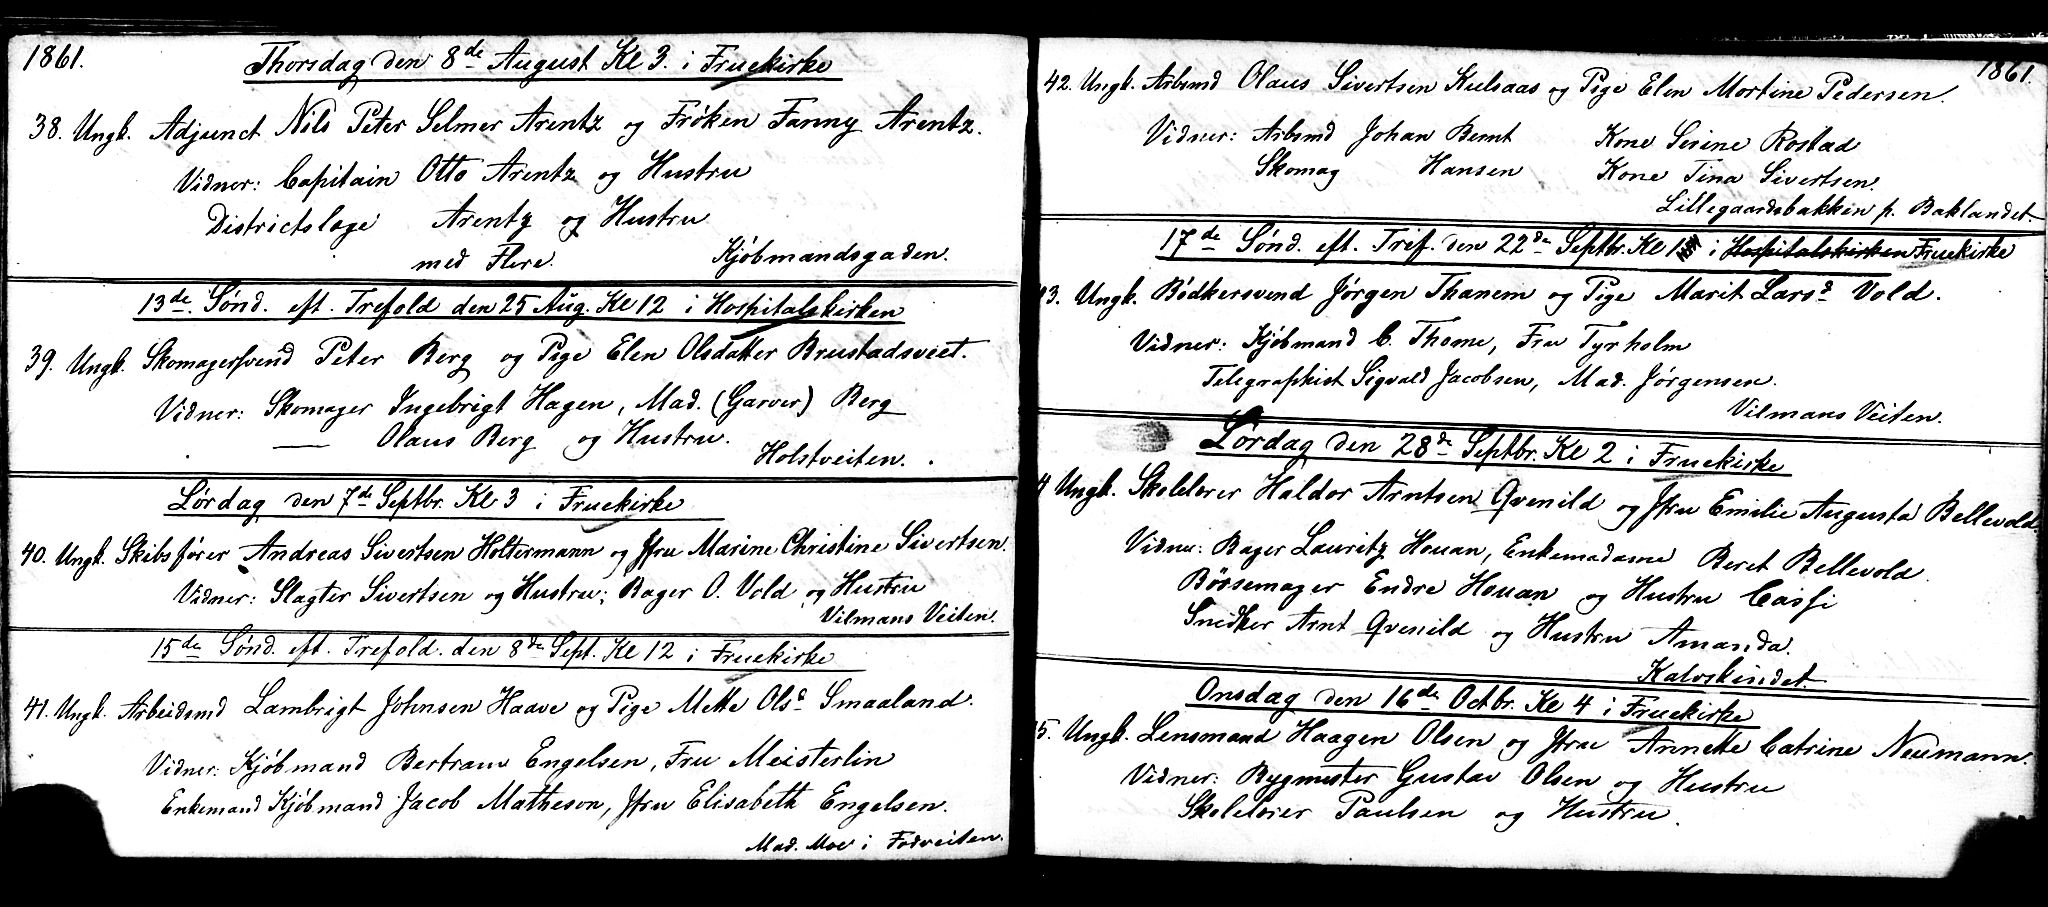 1861. Thorsdag den 8de August Kl 3. i Fruekirke
38. Ungk. Adjunct Nils Peter Selmer Arentz og Frøken Fanny Arentz.
Vidner: Capitain Otto Arentz og Hustru
Districtslæge Arentz og Hustru
med Flere. Kjøbmandsgaden.
13de Sønd. eft. Trefold den 25 Aug. Kl 12 i Hospitalskirken
39. Ungk. Skomagersvend Peter Berg og Pige Elen Olsdatter Brustadsveet.
Vidner: Skomager Ingebrigt Hagen, Mad. (Garver) Berg
— Olaus Berg og Hustru.
Holstveiten.
Lørdag den 7de Septbr. Kl 3 i Fruekirke
40. Ungk. Skibsfører Andreas Sivertsen Holtermann og Jfru Marine Christine Sivertsen.
Vidner: Slagter Sivertsen og Hustru; Bager O. Vold og Hustru
Vilmans Veiten.
15de Sønd. eft. Trefold. den 8de Sept. Kl 12 i Fruekirke
41. Ungk. Arbeidsmd Lambrigt Johnsen Haave og Pige Mette Olsd Smaaland.
Vidner: Kjøbmand Bertram Engelsen, Fru Meisterlin
Enkemand Kjøbmand Jacob Matheson, Jfru Elisabeth Engelsen.
Mad. Moe i Fodveiten.
1861.
42. Ungk. Arbsmd Olaus Sivertsen Kulsaas og Pige Elen Mortine Pedersen.
Vidner: Arbsmd Johan Bernt Kone Serine Rostad
Skomag Hansen Kone Tina Sivertsen.
Lillegaardsbakken p. Baklandet.
17de Sønd. eft. Tref. den 22de Septbr. Kl 1 i Hospitalskirken Fruekirke
43. Ungk. Bødkersvend Jørgen Thanem og Pige Marit Larsd Vold.
Vidner: Kjøbmand C. Thome, Fru Tyrholm
Telegraphist Sigvald Jacobsen, Mad. Jørgensen.
Vilmans Veiten.
Lørdag den 28de Septbr. Kl 2 i Fruekirke
4 Ungk. Skolelærer Haldor Arntsen Qvenild og Jfru Emilie Augusta Bellevold.
Vidner: Bager Lauritz Houan, Enkemadame Beret Bellevold.
Børsemager Endre Houan og Hustru Cassi
Snidker Arnt Qvenild og Hustru Amanda.
Kalvskindet.
Onsdag den 16de Octbr. Kl 4 i Fruekirke
5. Ungk. Lensmand Haagen Olsen og Jfru Annette Catrine Neumann.
Vidner: Bygmester Gustav Olsen og Hustru
Skolelærer Paulsen og Hustru.